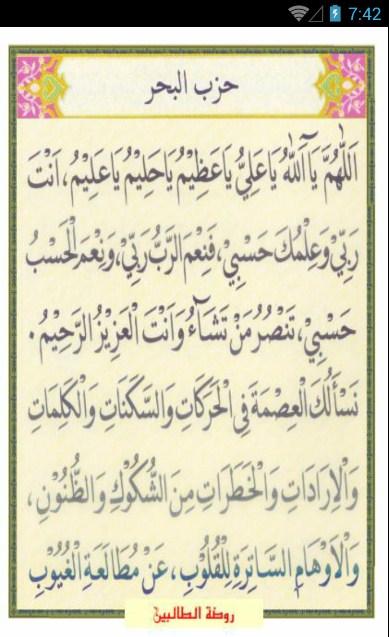 7:42
حزب البحر
اَللّٰهُمَّ يَآ اَللّٰهُ يَاعَلِيُّ يَاعَظِيْمُ يَاحَلِيْمُ يَاعَلِيْمُ، اَنْتَ
رَبِّيْ وَعِلْمُكَ حَسْبِيْ، فَنِعْمَ الرَّبُّ رَبِّيْ، وَنِعْمَ الْحَسْبُ
حَسْبِيْ، تَنْصُرُ مَنْ تَشَآءُ وَاَنْتَ الْعَزِيْزُ الرَّحِيْمُ.
نَسْأَلُكَ الْعِصْمَةَ فِى الْحَرَكَاتِ وَالسَّكَنَاتِ وَالْكَلِمَاتِ
وَالْاِرَادَاتِ وَالْخَطَرَاتِ مِنَ الشُّكُوْكِ وَالظُّنُوْنِ،
وَالْاَوْهَامِ السَّاتِرَةِ لِلْقُلُوْبِ، عَنْ مُطَالَعَةِ الْغُيُوْبِ
روضة الطالبين